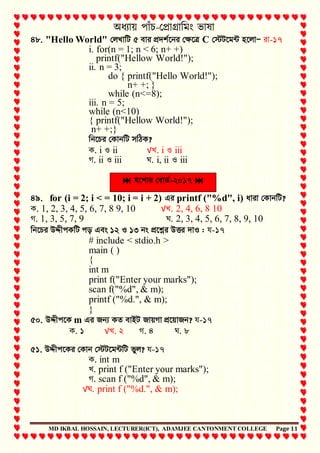 অধ্যায় পাঁচ-প্রোগ্রামিং ভাষা
৪৮. "Hello World" লেখাটি ৫ বার প্রদর্শনের ক্ষেত্রে C স্টেটমেন্ট হলো– রা-১৭
i. for(n = 1; n < 6; n+ +)
printf("Hellow World!");
ii. n = 3;
do { printf("Hello World!");
n+ +; }
while (n<=8);
iii. n = 5;
while (n<10)
{ printf("Hellow World!");
n+ +;}
নিচের কোনটি সঠিক?
ক. i ও ii √খ. i ও iii
গ. ii ও iii ঘ. i, ii ও iii
⏮ যশোর বোর্ড-২০১৭ ⏭
৪৯. for (i = 2; i < = 10; i = i + 2) এর printf ("%d", i) ধারা কোনটি?
ক. 1, 2, 3, 4, 5, 6, 7, 8 9, 10 √খ. 2, 4, 6, 8 10
গ. 1, 3, 5, 7, 9 ঘ. 2, 3, 4, 5, 6, 7, 8, 9, 10
নিচের উদ্দীপকটি পড় এবং ১২ ও ১৩ নং প্রশ্নের উত্তর দাও : য-১৭
# include < stdio.h >
main ( )
{
int m
print f("Enter your marks");
scan f("%d", & m);
printf ("%d.", & m);
}
৫০. উদ্দীপকে m এর জন্য কত বাইট জায়গা প্রয়োজন? য-১৭
ক. ১ √খ. ২ গ. ৪ ঘ. ৮
৫১. উদ্দীপকের কোন স্টেটমেন্টটি ভুল? য-১৭
ক. int m
খ. print f ("Enter your marks");
গ. scan f ("%d", & m);
√ঘ. print f ("%d.", & m);
MD IKBAL HOSSAIN, LECTURER(ICT), ADAMJEE CANTONMENT COLLEGE Page 11